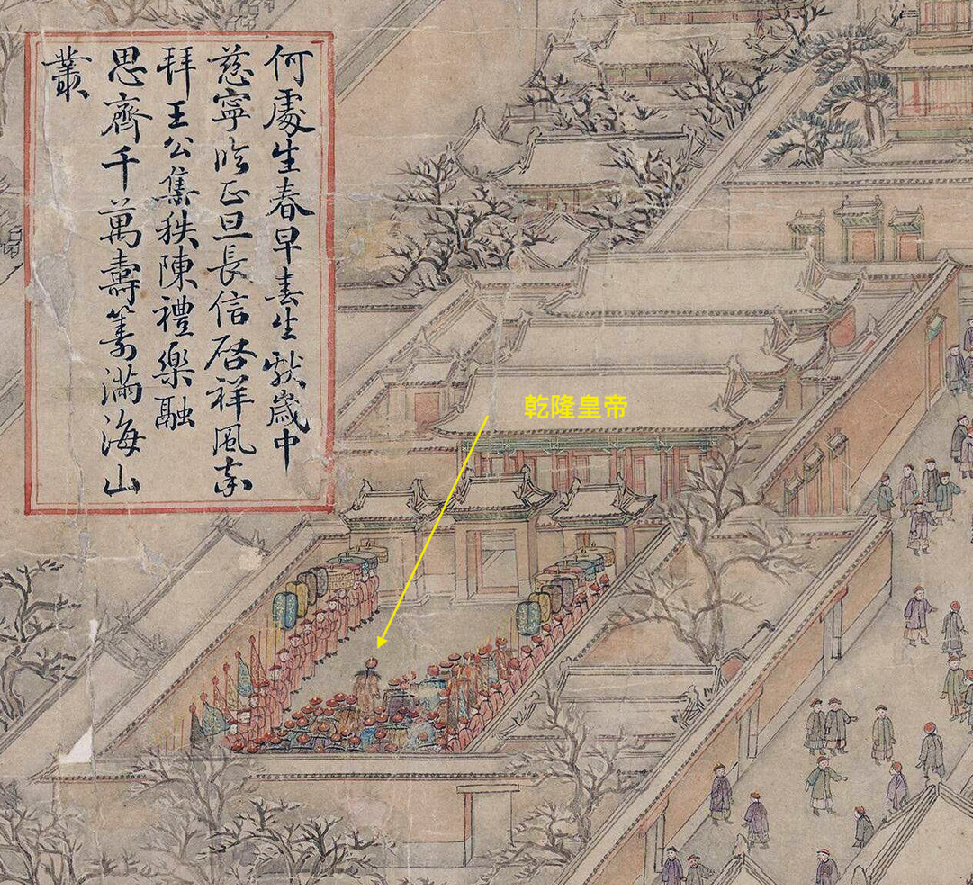 何處生春早春生獻歲中
慈寧臨正旦長信啓祥風率
拜王公集秩陳禮樂融
思齊千萬壽籌滿海山
叢
乾隆皇帝